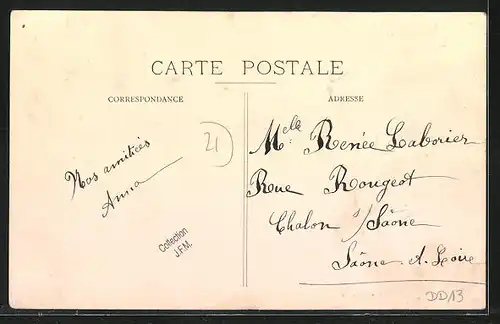 CARTE POSTALE
CORRESPONDANCE
ADRESSE
Nos amitiés
Anna
21
Collection
J.F.M.
Melle Renée Laborier
Rue Rougeot
Chalon s/Saône
Saône-et-Loire
DD13